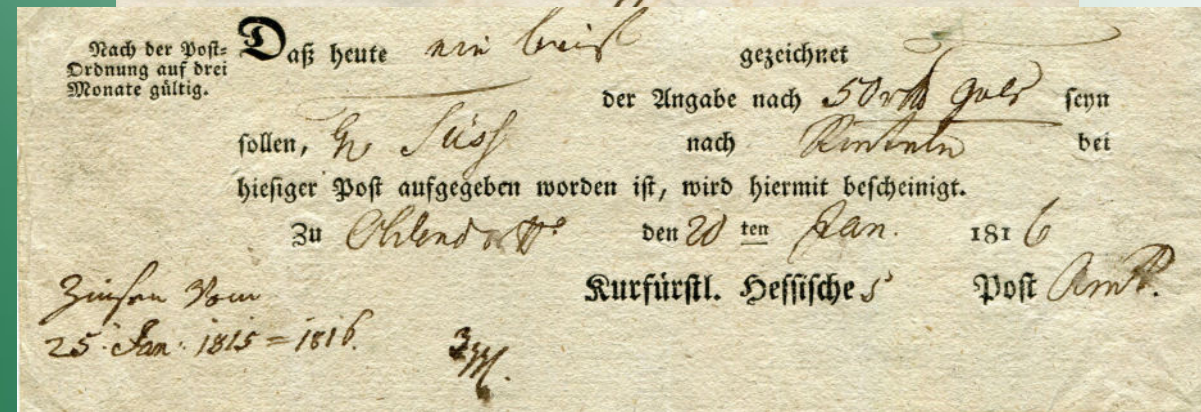 Nach der Post=
Ordnung auf drei
Monate gültig.
Daß heute ein brief gezeichnet
der Angabe nach 50 rth gold seyn
sollen, Süss nach Rinteln bei
hiesiger Post aufgegeben worden ist, wird hiermit bescheinigt.
Zu Oldendorff den 20 ten Jan. 1816
Kurfürstl. Hessisches Post Amt.
Zinsen vom
25. Jan: 1815 = 1816.